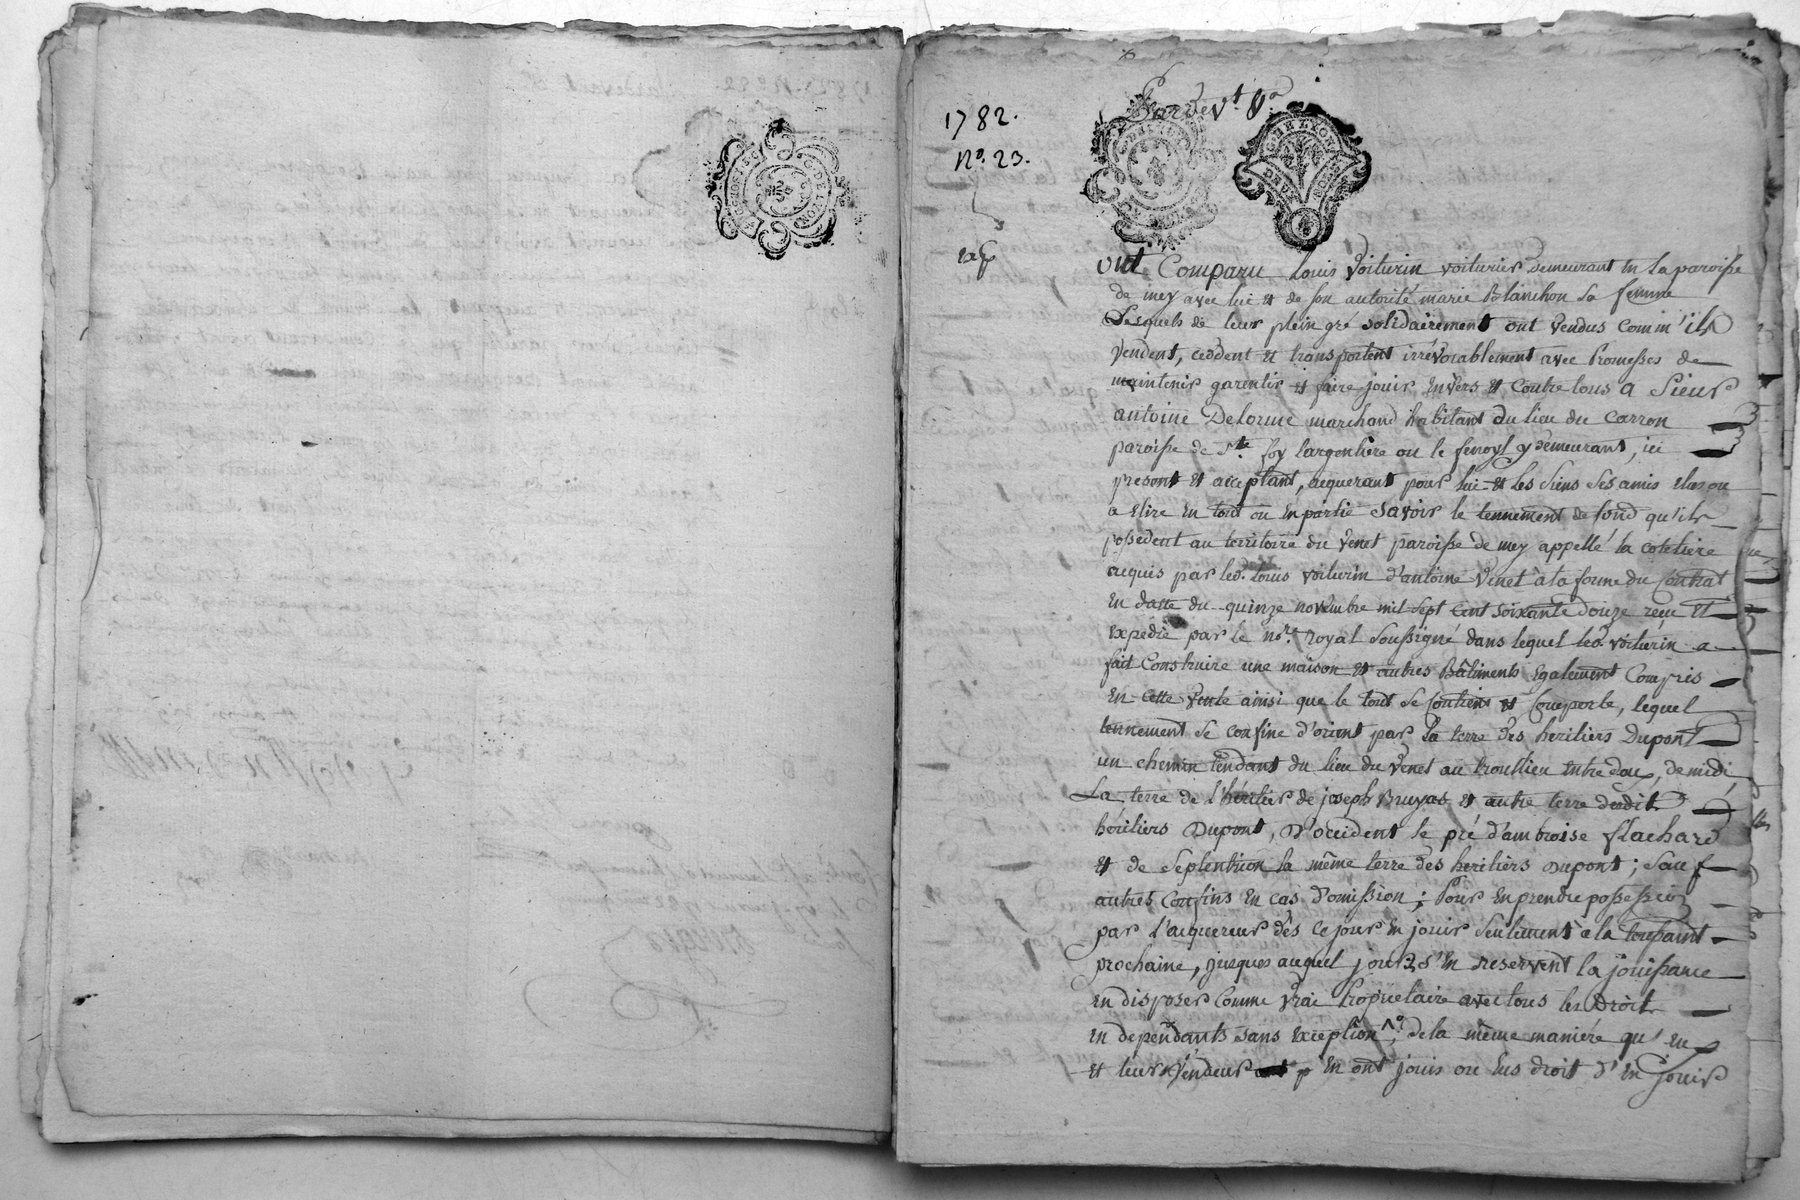 1782.
N.o 23.
exp
Pardev.t &.a
G. DE LYON
GNER. LYON
DEUX SOLS
ont Comparu Louis Voiturin voiturier demeurant en la paroisse
de mey avec lui et de son autorité marie Blanchon sa femme
Lesquels de leur plein gré solidairement ont vendus comm'ils
vendent, ceddent et transportent irrévocablement avec Promesses de
maintenir garentir et faire jouir envers et contre tous a Sieur
antoine Delorme marchand habitant du lieu du carron
paroisse de S.te foy largentière ou le fenoyl y demeurant, ici
present et acceptant, acquerant pour lui et les siens ses amis elus ou
a elire en tout ou en partie Savoir le tennement de fond qu'ils
possedent au territoire du Venet paroisse de mey appellé la coteliere
acquis par led. Louis voiturin d'antoine Venet à la forme du Contrat
en datte du quinze novembre mil sept cent soixante douze reçu et
expedié par le no.re Royal soussigné dans lequel led. voiturin a
fait construire une maison et autres Bâtiments egalement compris
en cette vente ainsi que le tout se contient et comporte, lequel
tennement se confine d'orient par la terre des heritiers Dupont
un chemin tendant du lieu du Venet au entre deux, de midi
La terre de l'heritier de joseph Bruyas et autre terre desdits
héritiers Dupont, D'occident le pré d'ambroise flachard
et de Septentrion la même terre des heritiers Dupont; sauf
autres Confins en cas d'omission; Pour en prendre possession
par l'acquereur dès ce jour en jouir seulement à la toussaint
prochaine, jusques auquel jour s'en reservent la jouissance
en disposer comme vrai Proprietaire avec tous les Droits
en dependants sans exception, de la même manière qu'eux
et leurs Vendeur en ont jouis ou eus droit d'en jouir